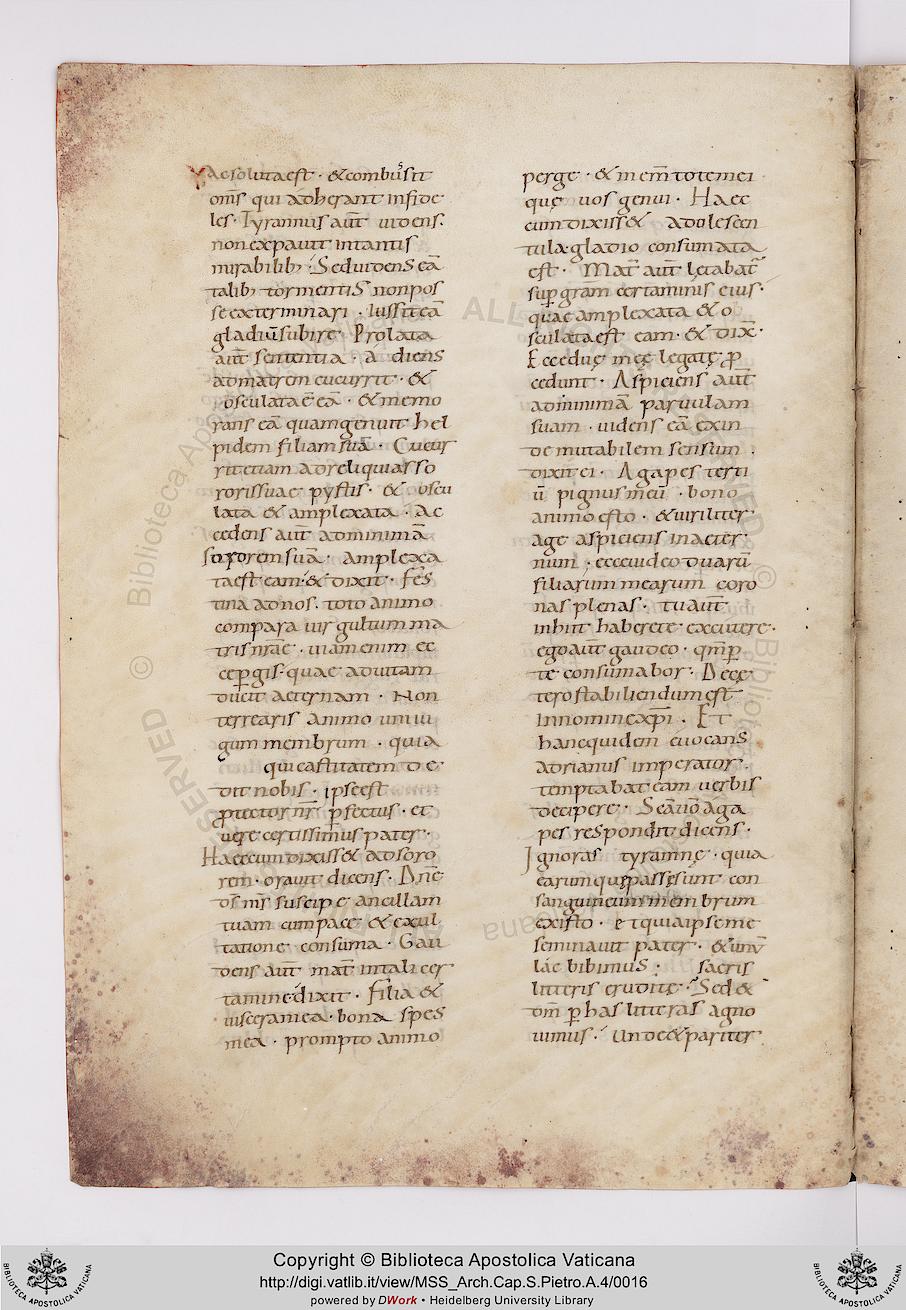 ac soluta est · & combusit
om̅s qui adherant infide
les · Tyrannus aut̅ uidens ·
non expauit in tantis
mirabilib; · Sed uidens ea̅
talib; tormentis non pos
se exterminari · Iussit ea̅
gladiu̅ subire · Prolata
aut̅ sententia · audiens
ad matrem cucurrit · &
osculata e̅ ea̅ · & memo
rans ea̅ quam genuit hel
pidem filiam sua̅ · Cucur
rit etiam ad reliquias so
roris suae pystis · & oscu
lata & amplexata · Ac
cedens aut̅ ad minima̅
sororem sua̅ · amplexa
ta est eam · & dixit · Fes
tina ad nos · toto animo
compara uirgultum ma
tris nr̅ae · uiam enim ec
ce pergis quae ad uitam
ducit aeternam · Non
terrearis animo uniu
gum membrum · quia
qui castitatem de
dit nobis · ipse est
ptector nr̅ pfectus · et
uere certissimus pater ·
Haec cum dixiss& ad soro
rem · orauit dicens · Dn̅e
ds̅ ms̅ suscipe ancillam
tuam cum pace & exul
tatione consuma · Gau
dens aut̅ mat̅ in tali cer
tamine dixit · Filia &
uiscera mea · bona spes
mea · prompto animo
perge · & mem̅tote mei
quę uos genui · Haec
cum dixiss& adolescen
tula · gladio consumata
est · Mat̅ aut̅ lętabat̅
sup gr̅am certaminis eius ·
quae amplexata & o
sculata est eam · & dix̅ ·
Ecce duę meę legatę p̅
cedunt · Aspiciens aut̅
ad minima̅ paruulam
suam · uidens ea̅ ex in
demutabilem sensum ·
dixit ei · Agapes terti
u̅ pignus meu̅ · bono
animo esto · & uiriliter
age aspiciens in aeter
num · ecce uideo duaru̅
filiarum mearum coro
nas plenas · tu aut̅
inhiit haberete excutere ·
ego aut̅ gaudeo · qm̅ p
te consumabor · De cę
tero stabiliendum est
in nomine xp̅i · Et
hanc quidem euocans
adrianus imperator ·
temptabat eam uerbis
decipere · Sed aga
pes respondit dicens ·
Ignoras tyramnę · quia
earum quę passę sunt con
sanguineum membrum
existo · et quia ipse me
seminauit pater · & unu̅
lac bibimus · sacris
litteris eruditę · Sed &
om̅ p has litteras agno
uimus · unde & pariter